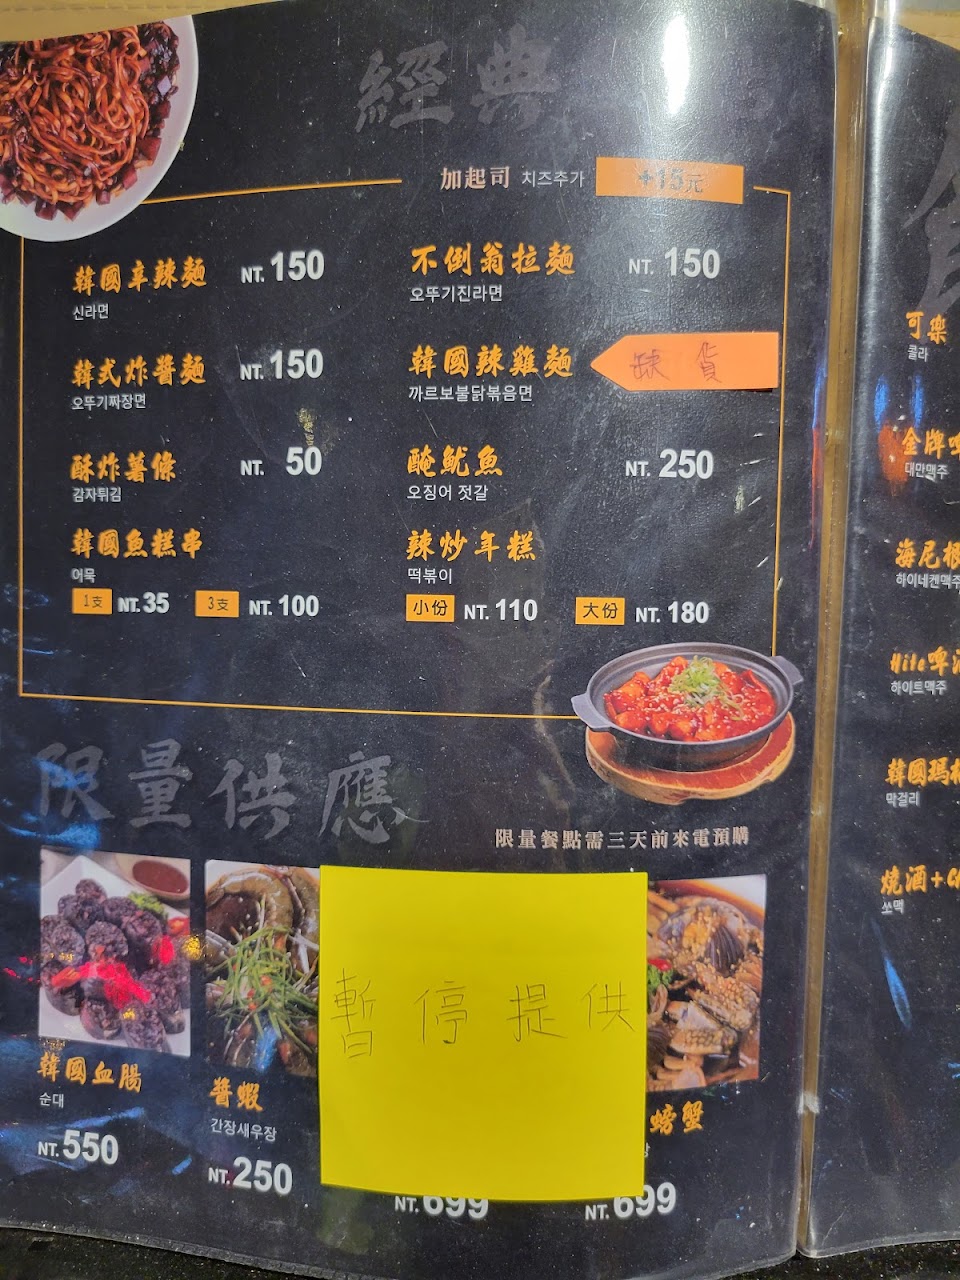 經典
加起司 치즈추가 +15元
韓國辛辣麵 NT. 150
신라면
不倒翁拉麵 NT. 150
오뚜기진라면
韓式炸醬麵 NT. 150
오뚜기짜장면
韓國辣雞麵 缺貨
까르보불닭볶음면
酥炸薯條 NT. 50
감자튀김
醃魷魚 NT. 250
오징어 젓갈
韓國魚糕串
어묵
1支 NT. 35 3支 NT. 100
辣炒年糕
떡볶이
小份 NT. 110 大份 NT. 180
限量供應
限量餐點需三天前來電預購
暫停提供
韓國血腸
순대
NT. 550
醬蝦
간장새우장
NT. 250
NT. 699
螃蟹
NT. 699
可樂
콜라
金牌
대만맥주
海尼根
하이네켄맥주
Hite啤酒
하이트맥주
韓國瑪
막걸리
燒酒+
쏘맥